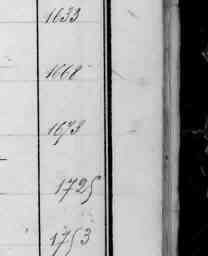 1633
1668
1673
1725
1753